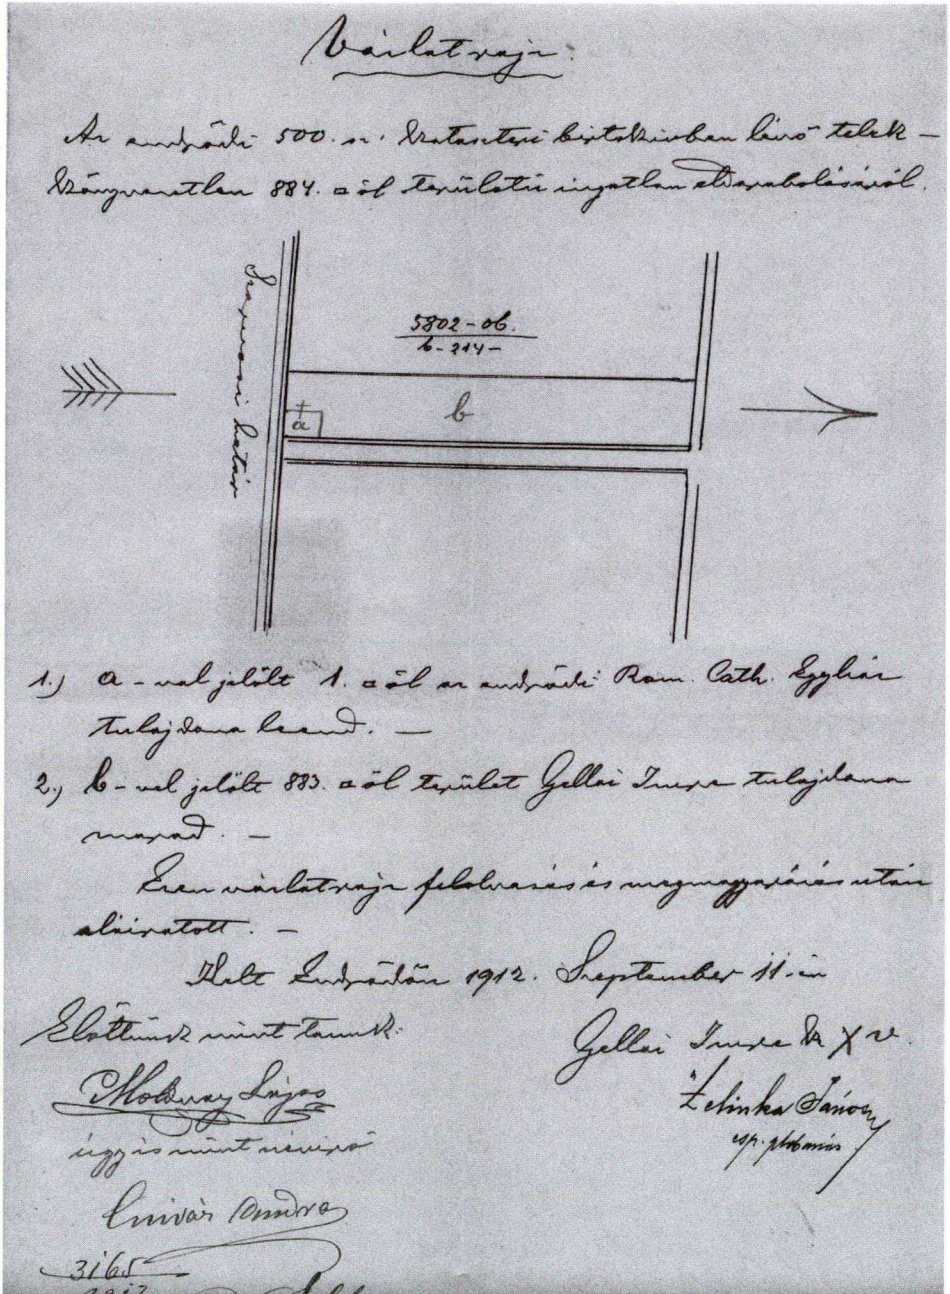 Vázlatrajz.
Az endrődi 500. sz. kataszteri birtokívben lévő telek-
könyvezetlen 884. □ öl területü ingatlan eldarabolásáról.
5802-ob.
b-214-
Szarvasi határ
a
b
1.) a-val jelölt 1. □ öl az endrődi Rom. Cath. Egyház
tulajdona leend. —
2.) b-vel jelölt 883. □ öl terület Gellai Imre tulajdona
marad. —
Ezen vázlatrajz felolvasás és megmagyarázás után
aláiratott. —
Kelt Endrődön 1912. Szeptember 11-én
Előttünk mint tanuk:
Gellai Imre k X v.
Lajos
Zelinka János
esp. plébános
úgyis mint névíró
3165